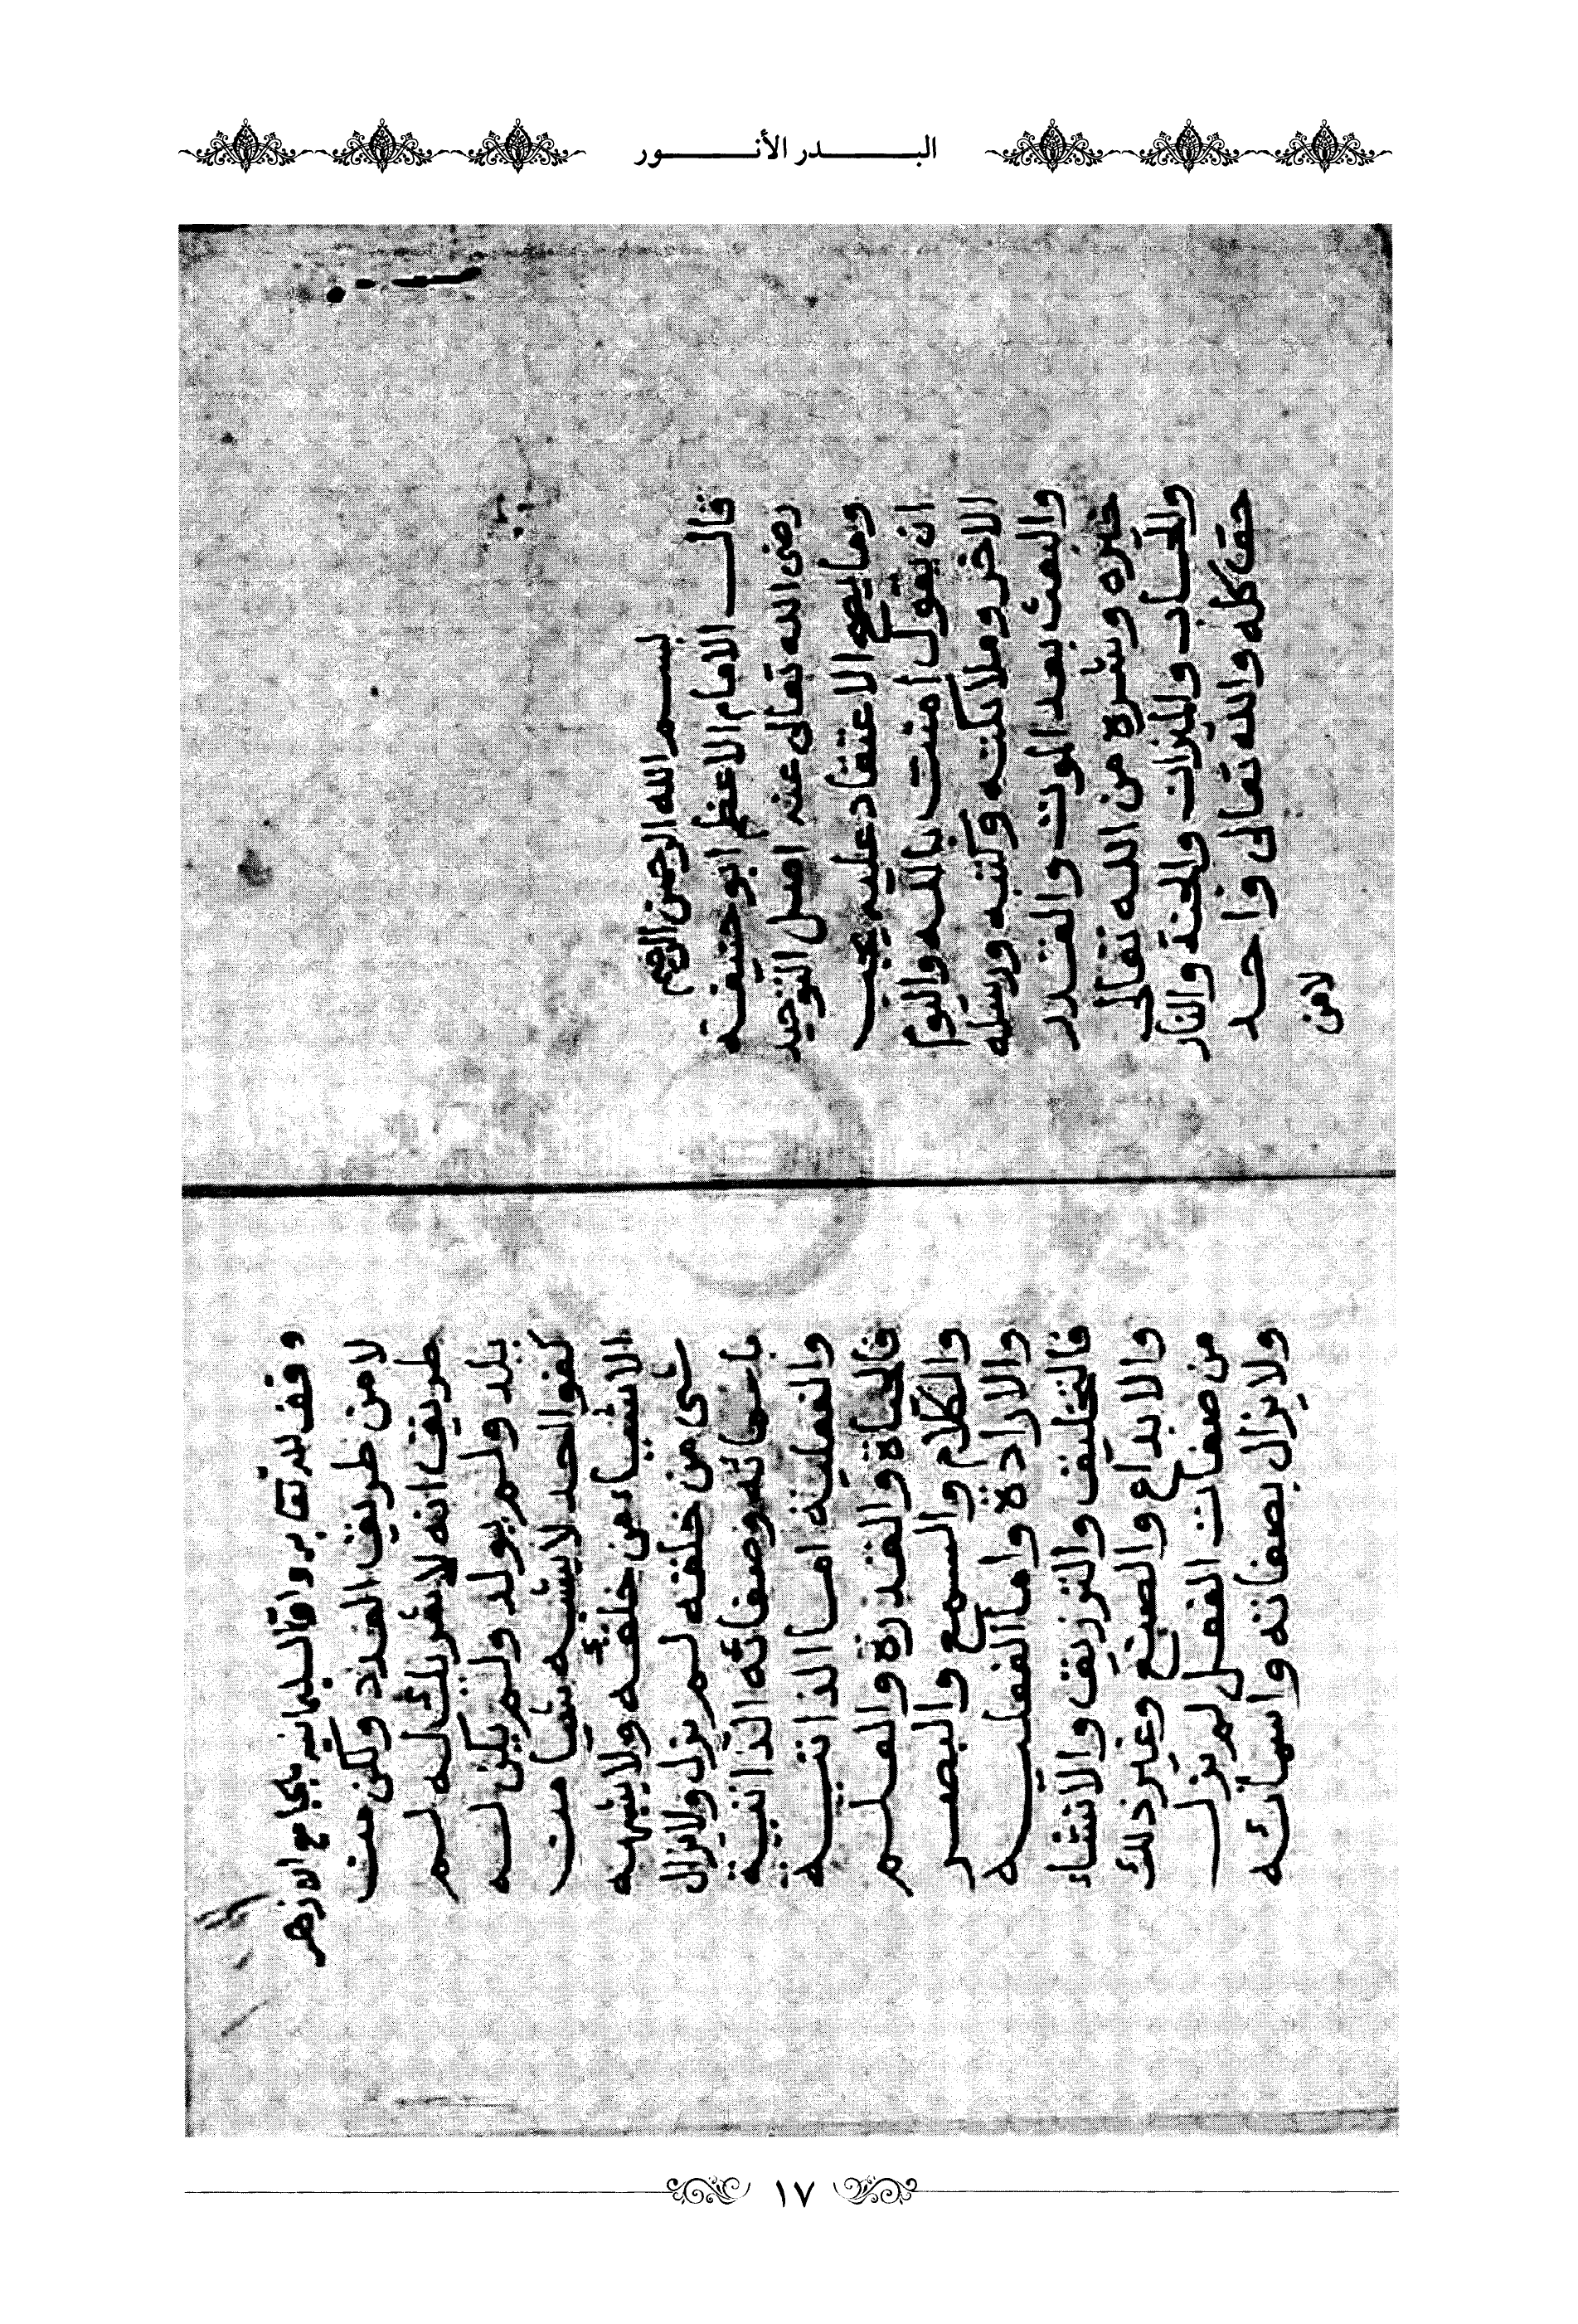 البدر الأنور
بسم الله الرحمن الرحيم
قال الامام الاعظم ابو حنيفة
رضى الله تعالى عنه اصل التوحيد
وما يصح الاعتقاد عليه يجب
ان يقول امنت بالله واليوم
الاخر وملائكته وكتبه ورسله
والبعث بعد الموت والقدر
خيره وشره من الله تعالى
والحساب والميزان والجنة والنار
حق كله والله تعالى واحد
لا من
وقف لله تعا برواق بجامع الازهر
لا من طريق العدد ولكن من
طريق انه لا شريك له لم
يلد ولم يولد ولم يكن له
كفوا احد لا يشبه شيأ من
الاشياء من خلقه ولا يشبهه
شئ من خلقه لم يزل ولا يزال
باسمائه وصفاته الذاتية
والفعلية اما الذاتية
فالحياة والقدرة والعلم
والكلام والسمع والبصر
والارادة واما الفعلية
فالتخليق والترزيق والانشاء
والابداع والصنع وغير ذلك
من صفات الفعل لم يزل
ولا يزال بصفاته واسمائه
١٧